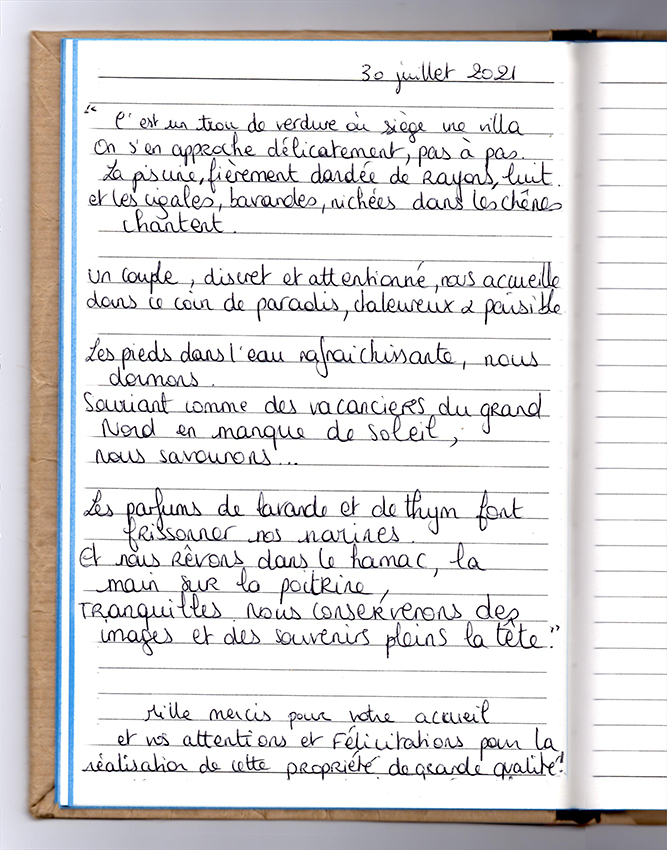 30 juillet 2021
" C'est un trou de verdure où siège une villa
On s'en approche délicatement, pas à pas.
La piscine, fièrement dardée de Rayons, luit.
et les cigales, bavardes, nichées dans les chênes
chantent.
Un couple, discret et attentionné, nous accueille
dans ce coin de paradis, chaleureux & paisible
Les pieds dans l'eau rafraichissante, nous
dormons.
Souriant comme des vacanciers du grand
Nord en manque de soleil,
nous savourons...
Les parfums de lavande et de thym font
frissonner nos narines.
Et nous Rêvons dans le hamac, la
main sur la poitrine,
TRanquilles. Nous conserverons des
images et des souvenirs pleins la tête."
Mille mercis pour votre accueil
et vos attentions et Félicitations pour la
réalisation de cette propriété de grande qualité!